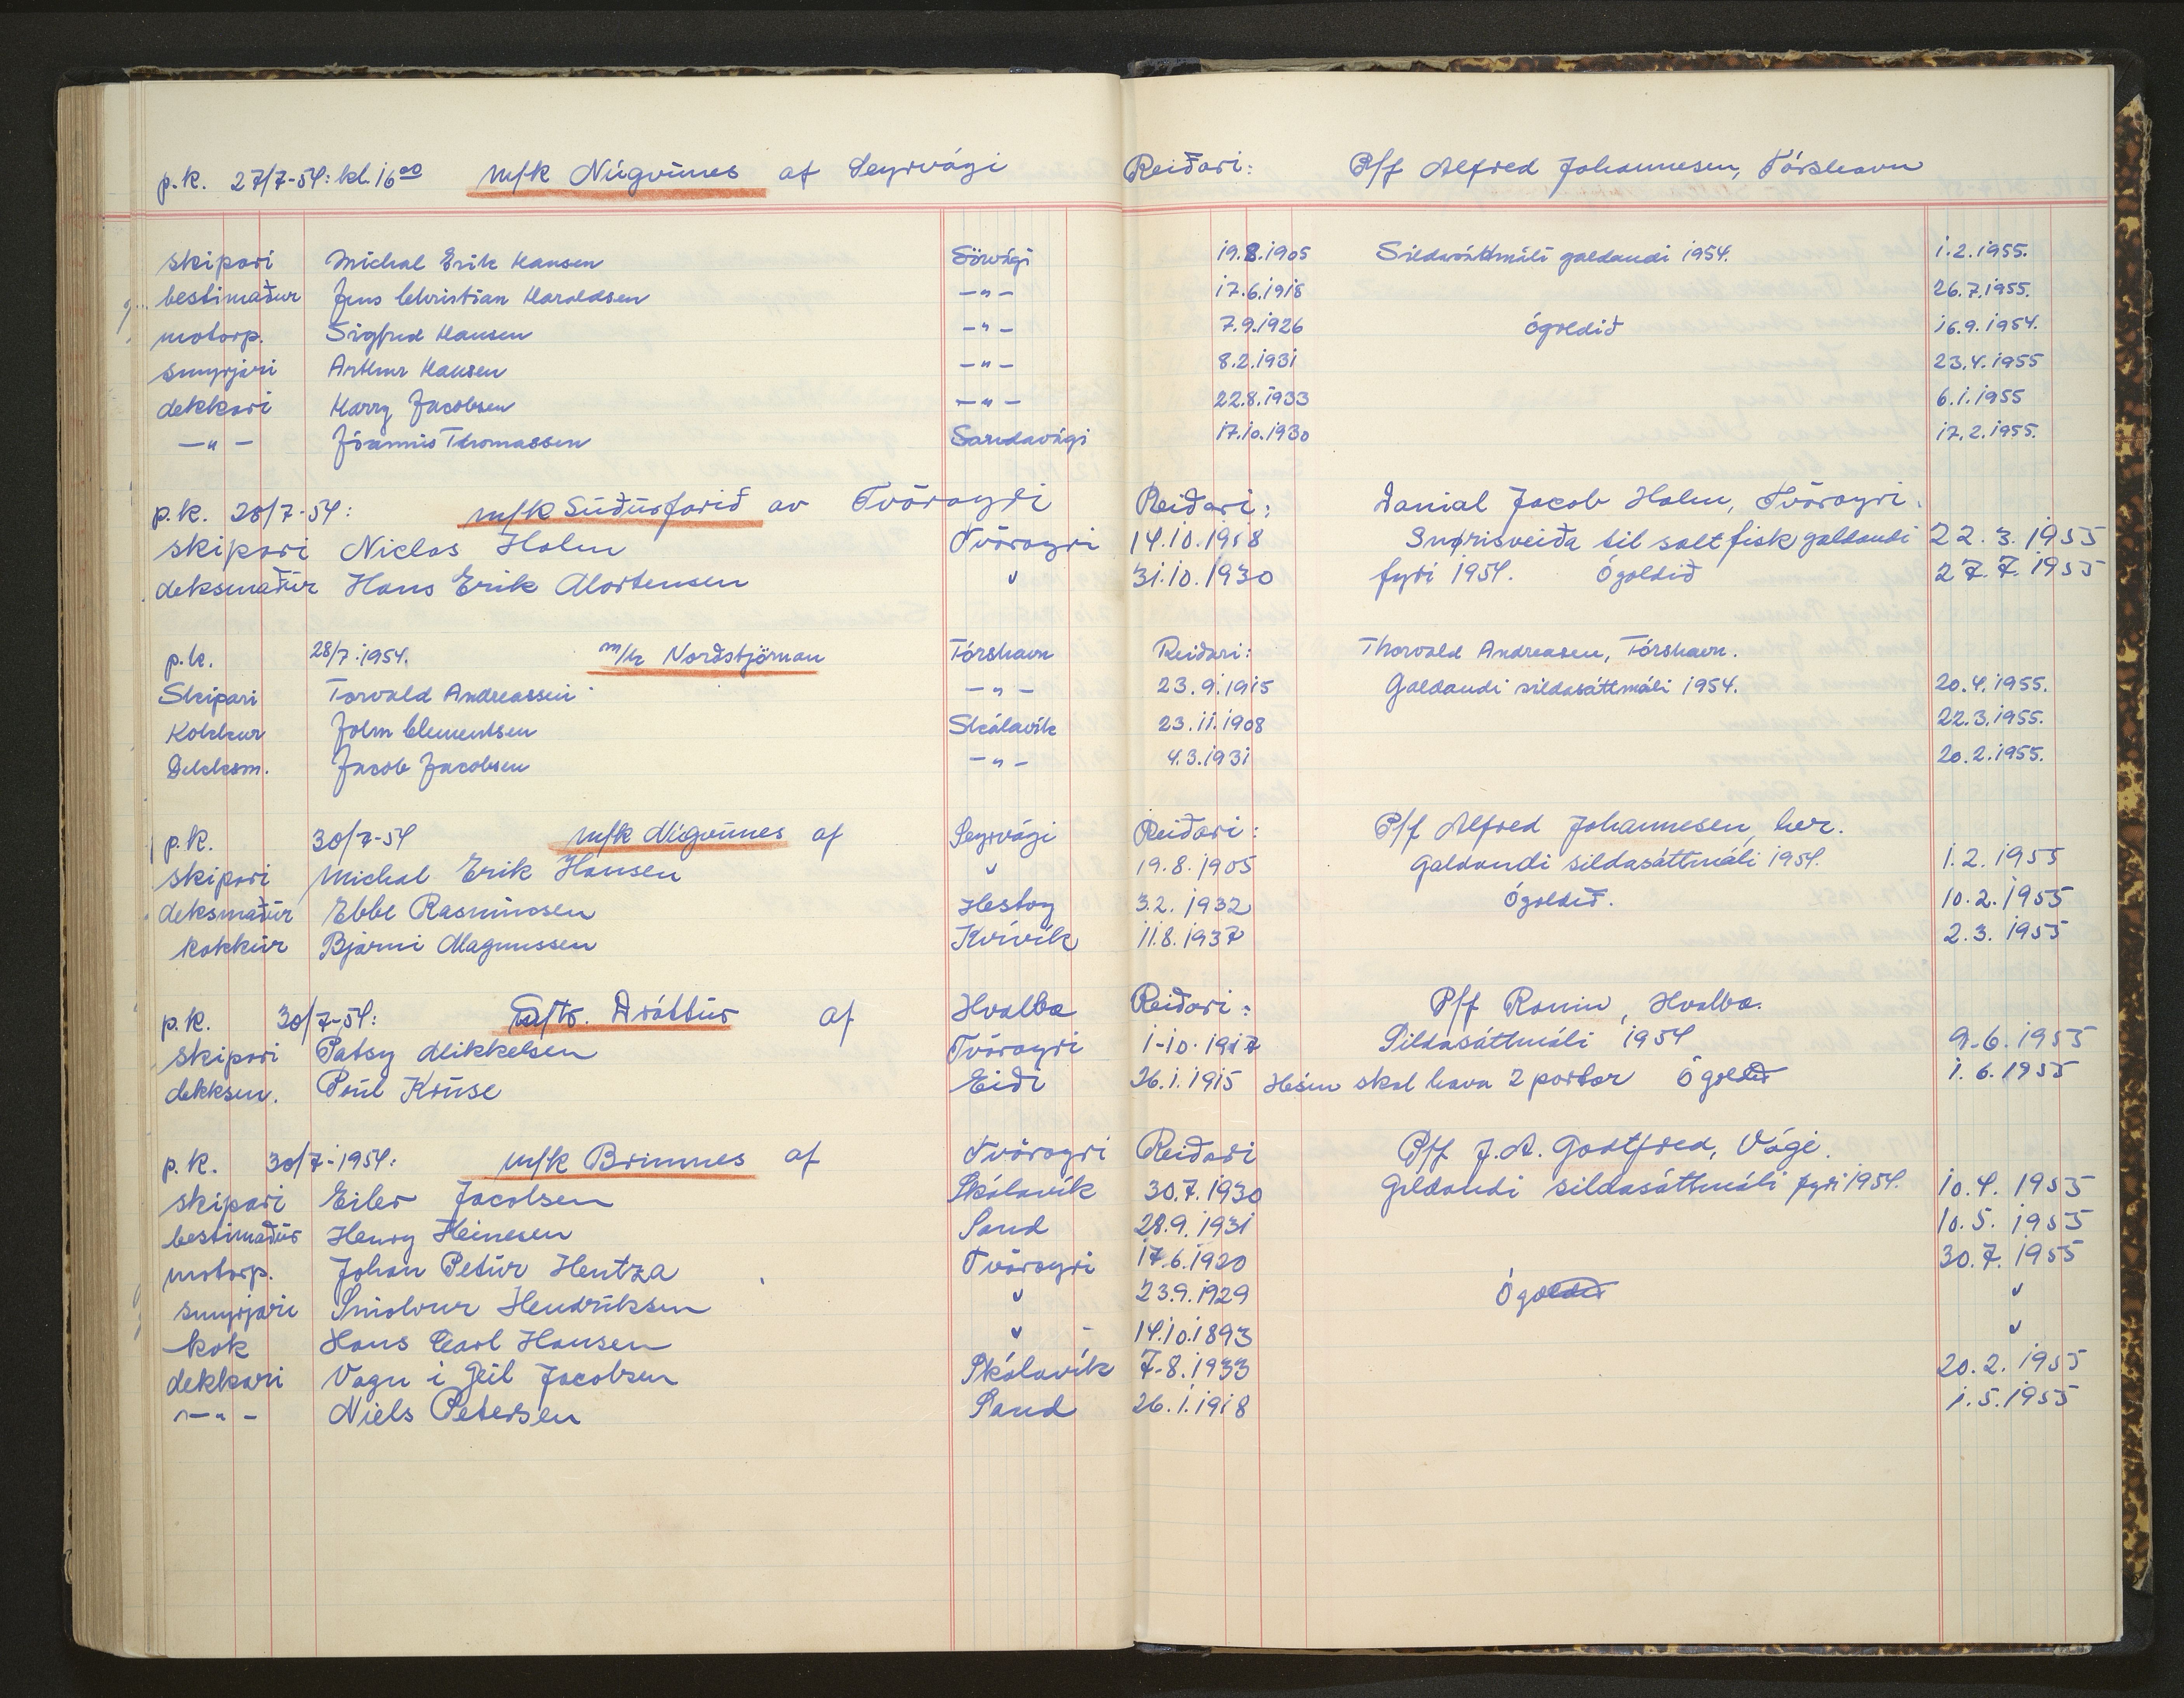 p.k. 27/7-54: kl. 16 00 m/k Núgvúnes af Leyrvági Reiðari: P/f Alfred Johannesen, Tórshavn
skipari Michal Erik Hansen Sörvági 19.8.1905 Sildasáttmáli galdandi 1954. 1.2.1955.
bestimaður Jens Christian Haraldsen —"— 17.6.1918 26.7.1955.
motorp. Sigfred Hansen —"— 7.9.1926 ógoldið 16.9.1954.
smyrjari Arthur Hansen —"— 8.2.1931 23.4.1955
dekkari Harry Jacobsen —"— 22.8.1933 6.1.1955
—"— Jóannis Thomassen Sandavági 17.10.1930 17.2.1955.
p.k. 28/7-54: m/k Súðúrfarið av Tvöroyri Reiðari: Danial Jacob Holm, Tvöroyri.
skipari Niclas Holm Tvöroyri 14.10.1918 Snørisveiða til saltfisk galdandi 22.3.1955
deksmaður Hans Erik Mortensen " 31.10.1930 fyri 1954. Ógoldið 27.7.1955
p.k. 28/7-1954. m/k Norðstjörnan Tórshavn Reiðari: Thorvald Andreasen, Tórshavn.
Skipari Torvald Andreassen —"— 23.9.1915 Galdandi sildasáttmáli 1954. 20.4.1955.
Kokkur John Clementsen Skálavík 23.11.1908 22.3.1955.
Dekksm. Jacob Jacobsen —"— 4.3.1931 20.2.1955.
p.k. 30/7-54 m/k Núgvúnes af Leyrvági Reiðari: P/f Alfred Johannesen, her.
skipari Michal Erik Hansen " 19.8.1905 Galdandi sildasáttmáli 1954. 1.2.1955
deksmaður Ebbe Rasmussen Hestoy 3.2.1932 Ógoldið. 10.2.1955
kokkur Bjarni Magnussen Kvívík 11.8.1937 2.3.1955
p.k. 30/7-54: Dráttur af Hvalba Reiðari: P/f Ranin, Hvalba.
skipari Patsy Mikkelsen Tvöroyri 1-10-1917 Sildasáttmáli 1954 9-6.1955
dekksm. Poul Kruse Eiði 26.1.1915 Hesin skal hava 2 partar Ógoldið 1.6.1955
p.k. 30/7-1954: m/k Brimnes af Tvöroyri Reiðari P/f J.A. Godtfred, Vági.
skipari Eiler Jacobsen Skálavík 30.7.1930 Galdandi sildasáttmáli fyri 1954. 10.4.1955
bestimaður Henry Heinesen Sand 28.9.1931 10.5.1955
motorp. Johan Petur Hentza Tvöroyri 17.6.1920 30.7.1955
smyrjari Sniolvur Hendriksen " 23.9.1929 Ógoldið "
kok Hans Carl Hansen " 14.10.1893 "
dekkari Vagn i Geil Jacobsen Skálavík 7-8.1933 20.2.1955
—"— Niels Petersen Sand 26.1.1918 1.5.1955